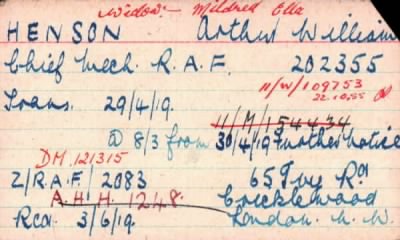 Widow:- Mildred Ella
HENSON Arthur William
Chief Mech. R.A.F. 202355
11/W/109753
22.10.55
Trans. 29/4/19.
11/M/154434
@ 8/3 from 30/4/19 Further notice
DM 121315
Z/R.A.F./2083 65 Ivy Rd
A.H.H. 1248. Cricklewood
Rcd. 3/6/19. London. N.W.